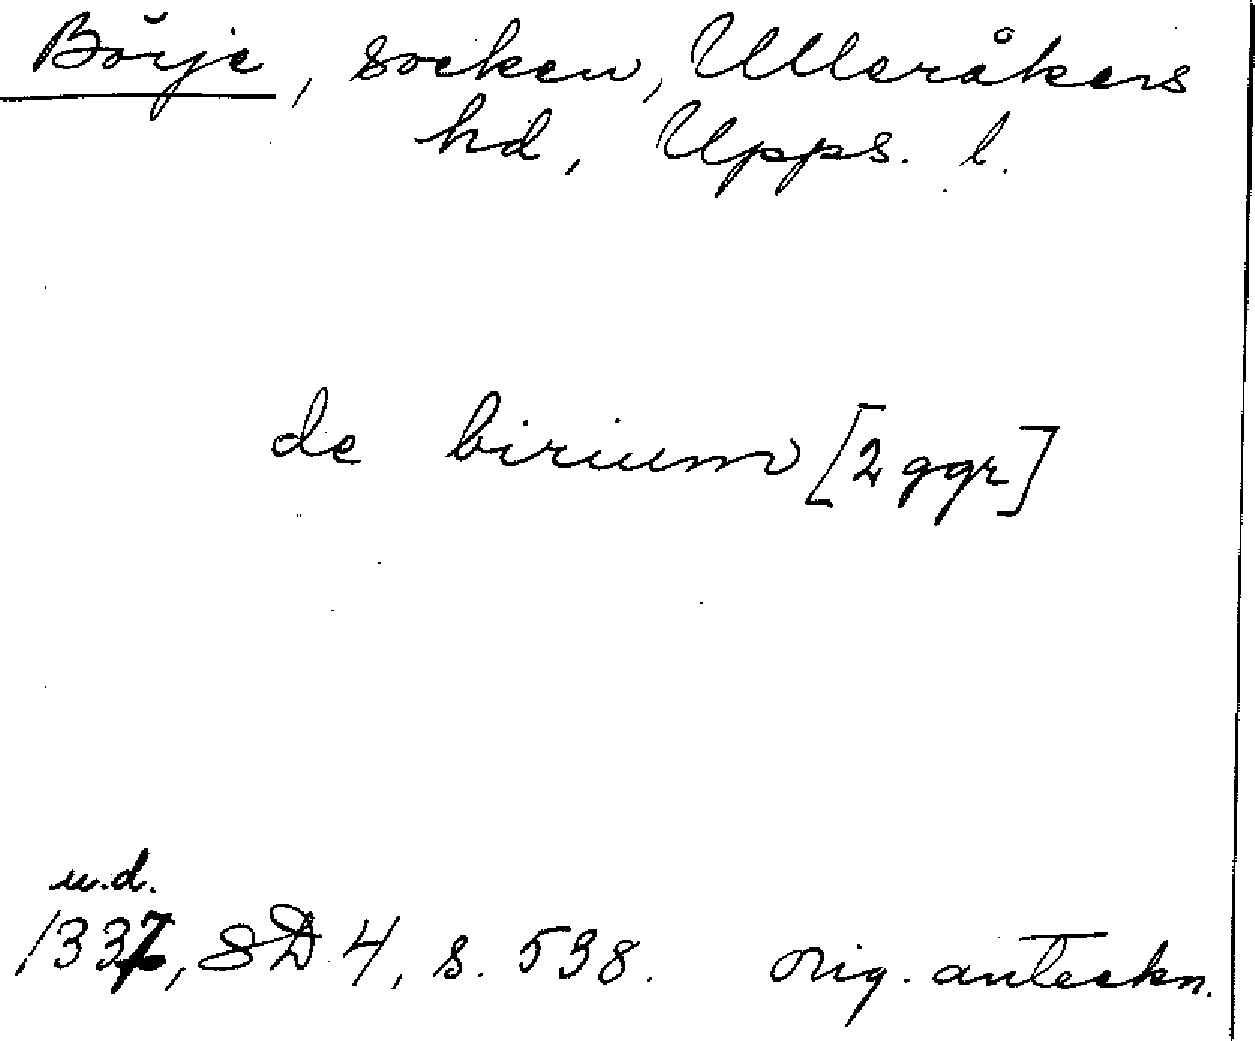 Börje, socken, Ulleråkers
hd, Upps. l.
de birium [2 ggr]
u.d.
1337, SD 4, s. 538. Orig. anteckn.